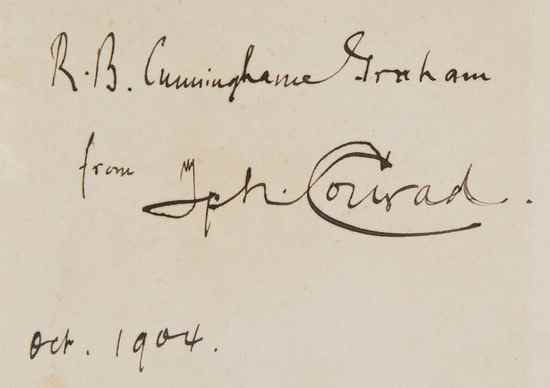 R. B. Cunninghame Graham
from Jph. Conrad.
Oct. 1904.